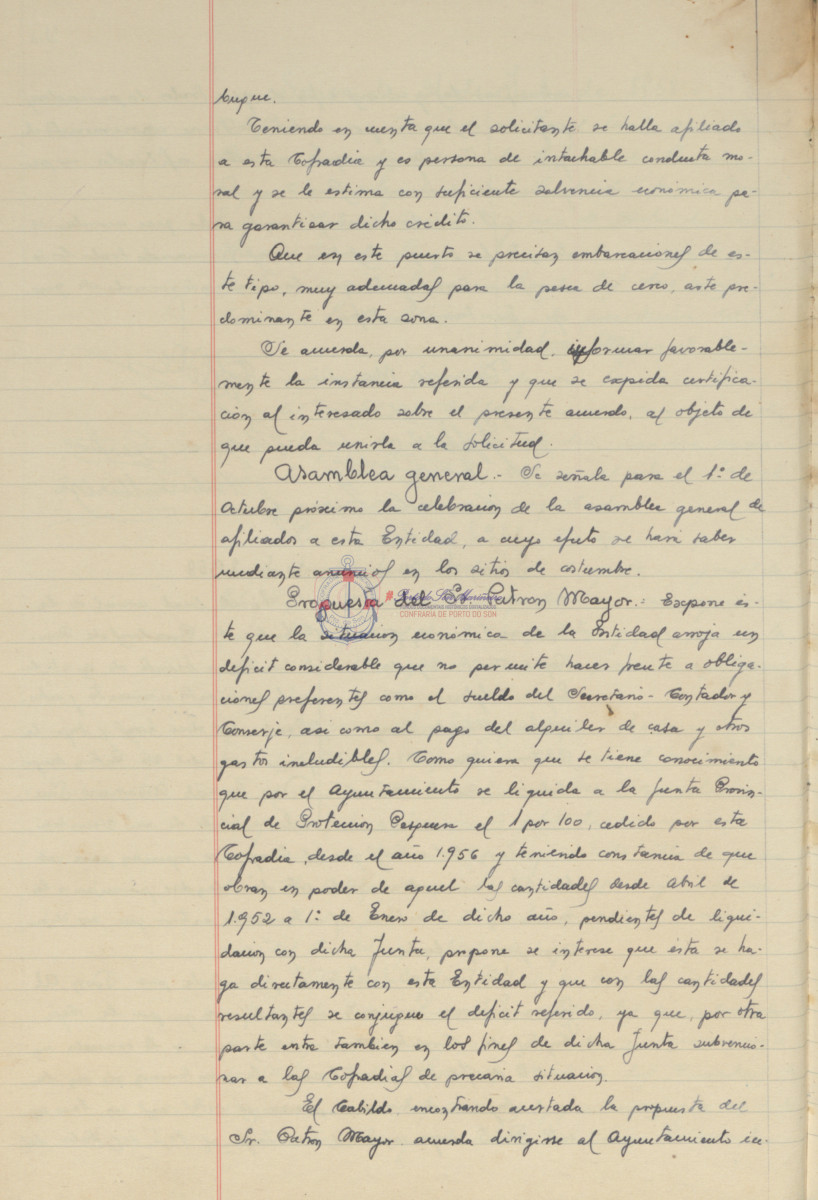 buque.
Teniendo en cuenta que el solicitante se halla afiliado
a esta Cofradia y es persona de intachable conducta mo-
ral y se le estima con suficiente solvencia económica pa-
ra garantizar dicho crédito.
Que en este puerto se precisan embarcaciones de es-
te tipo, muy adecuadas para la pesca de cerco, arte pre-
dominante en esta zona.
Se acuerda, por unanimidad, informar favorable-
mente la instancia referida y que se expida certifica-
ción al interesado sobre el presente acuerdo, al objeto de
que pueda unirla a la solicitud.
Asamblea general.- Se señala para el 1º de
Octubre próximo la celebracion de la asamblea general de
afiliados a esta Entidad, a cuyo efecto se hará saber
mediante anuncios en los sitios de costumbre.
Propuesta del Sr. Patron Mayor.: Expone és-
CONFRARIA DE PORTO DO SON
te que la situacion económica de la Entidad arroja un
deficit considerable que no permite hacer frente a obliga-
ciones preferentes como el sueldo del Secretario-Contador y
Conserje, asi como al pago del alquiler de casa y otros
gastos ineludibles. Como quiera que se tiene conocimiento
que por el Ayuntamiento se liquida a la Junta Provin-
cial de Protección Pesquera el 1 por 100, cedido por esta
Cofradia, desde el año 1.956 y teniendo constancia de que
obran en poder de aquel las cantidades desde Abril de
1.952 a 1º de Enero de dicho año, pendientes de liqui-
dacion con dicha Junta, propone se interese que ésta se ha-
ga directamente con esta Entidad y que con las cantidades
resultantes se conjugue el deficit referido, ya que, por otra
parte entra tambien en los fines de dicha Junta subvencio-
nar a las Cofradias de precaria situacion.
El Cabildo, encontrando acertada la propuesta del
Sr. Patron Mayor, acuerda dirigirse al Ayuntamiento in-